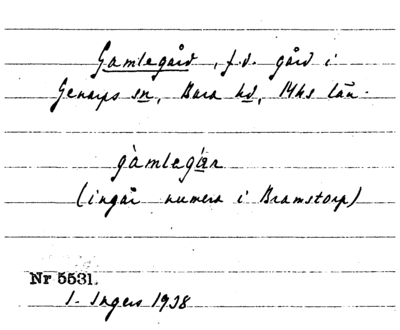 Gamlegård, f.d. gård i
Genarps sn, Bara hd, Mhs län.
gàmlegár
(ingår numera i Bramstorp)
Nr 5531.
I. Ingers 1938